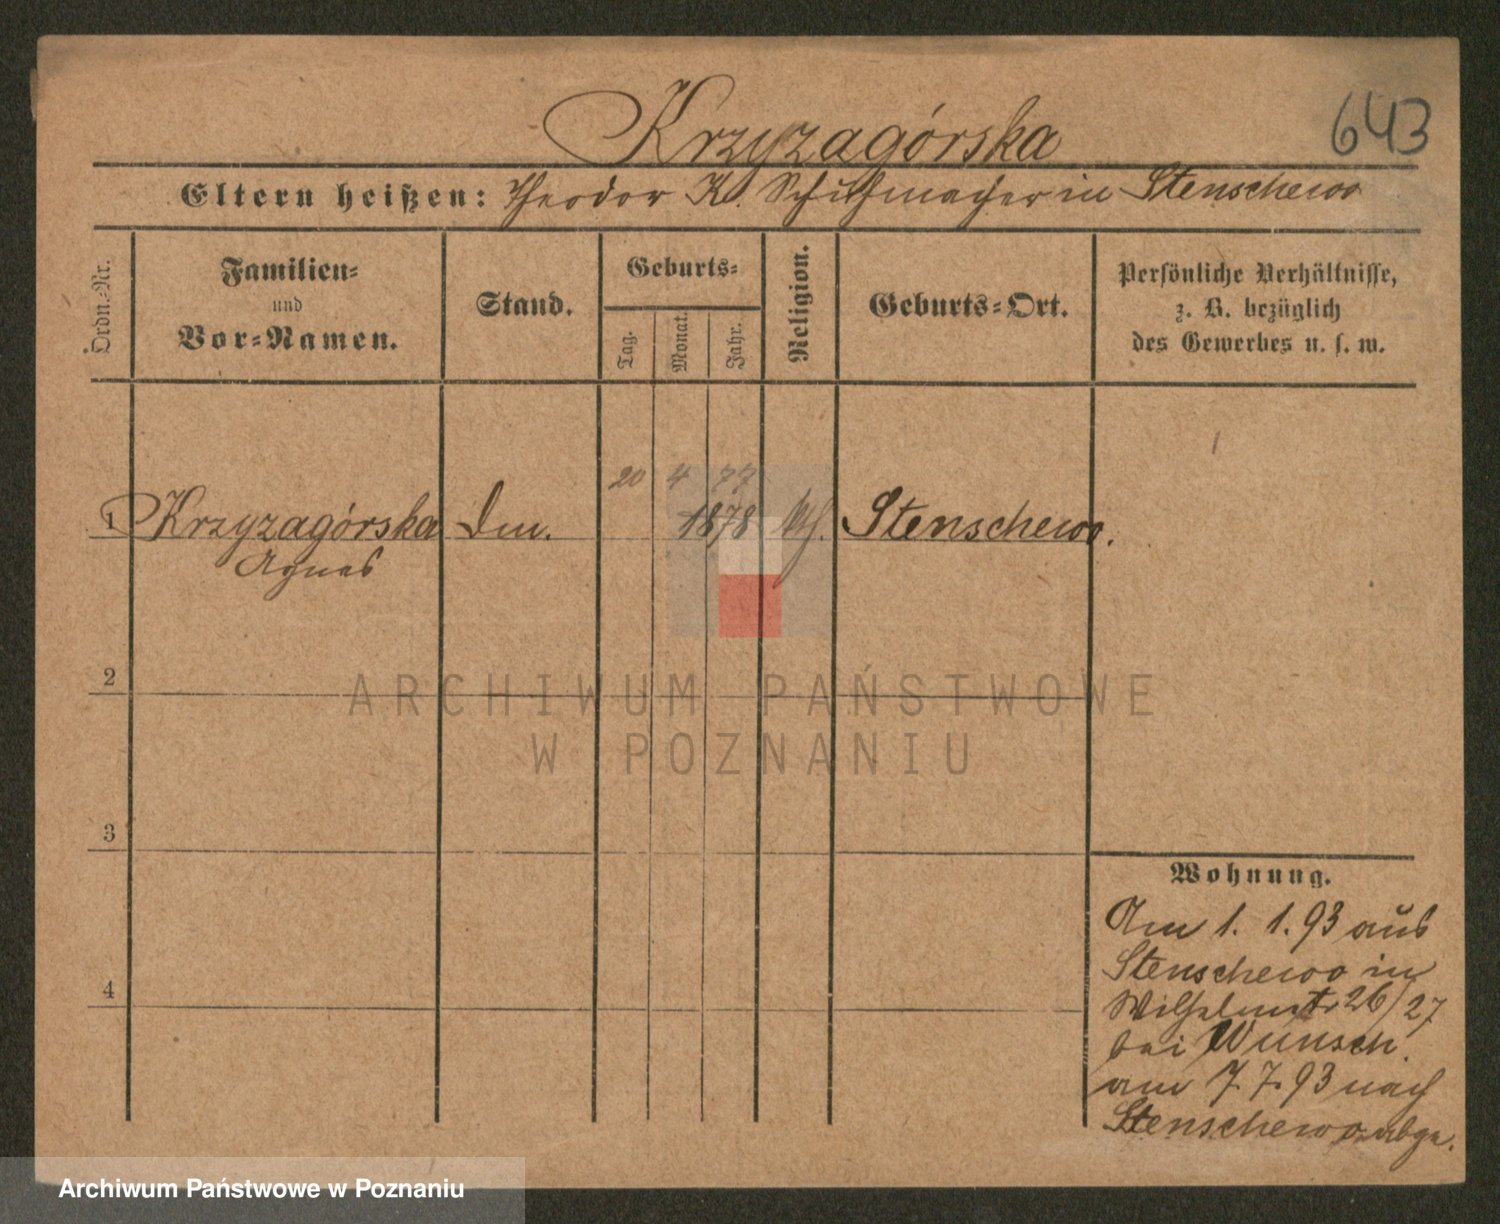 Krzyzagórska
643
Eltern heißen: Theodor K. Schuhmacher in Stenschewo
Ordn.-Nr.
Familien-
und
Vor-Namen.
Stand.
Geburts-
Tag.
Monat.
Jahr.
Religion.
Geburts-Ort.
Persönliche Verhältnisse,
z. B. bezüglich
des Gewerbes u. s. w.
20 4 77
1 Krzyzagórska 1878 kth. Stenschewo.
Agnes
2
ARCHIWUM PAŃSTWOWE
W POZNANIU
3
4
Wohnung.
Am 1. 1. 93 aus
Stenschewo in
Wilhelmstr 26/27
bei Wunsch.
am 7. 7. 93 nach
Stenschewo abge.
Archiwum Państwowe w Poznaniu